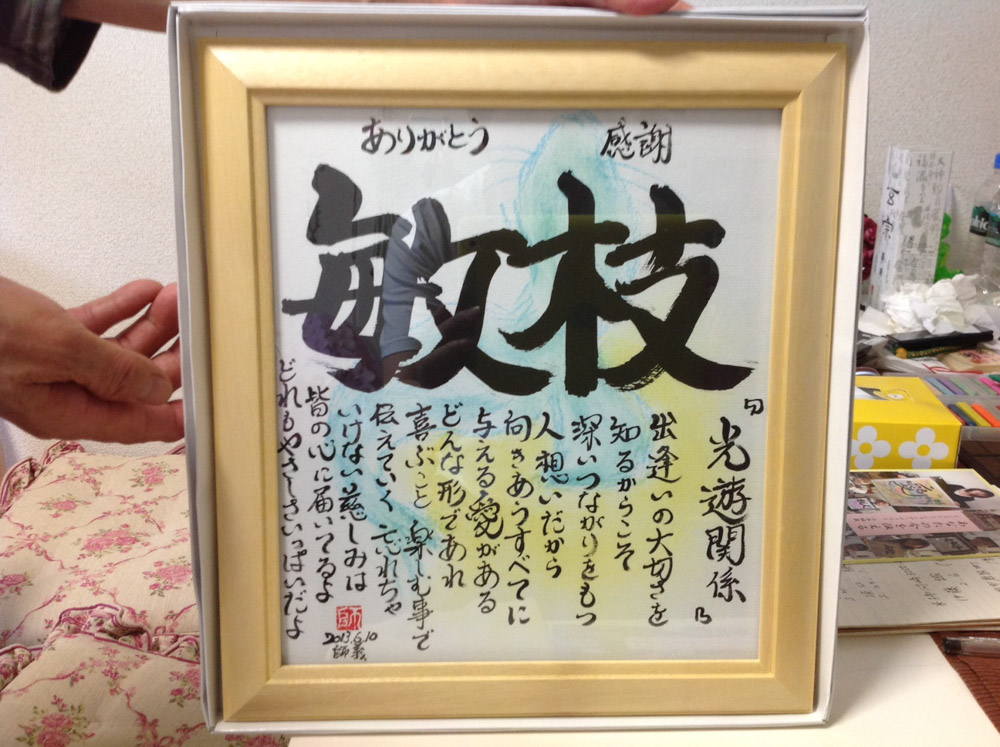 感謝
ありがとう
敏枝
『光遊関係』
出逢いの大切さを
知るからこそ
深いつながりをもつ
人想いだから
向きあうすべてに
与える愛がある
どんな形であれ
喜ぶこと楽しむ事で
伝えていく忘れちゃ
いけない慈しみは
皆の心に届いてるよ
どれもやさしさいっぱいだよ
2013.6.10
師義